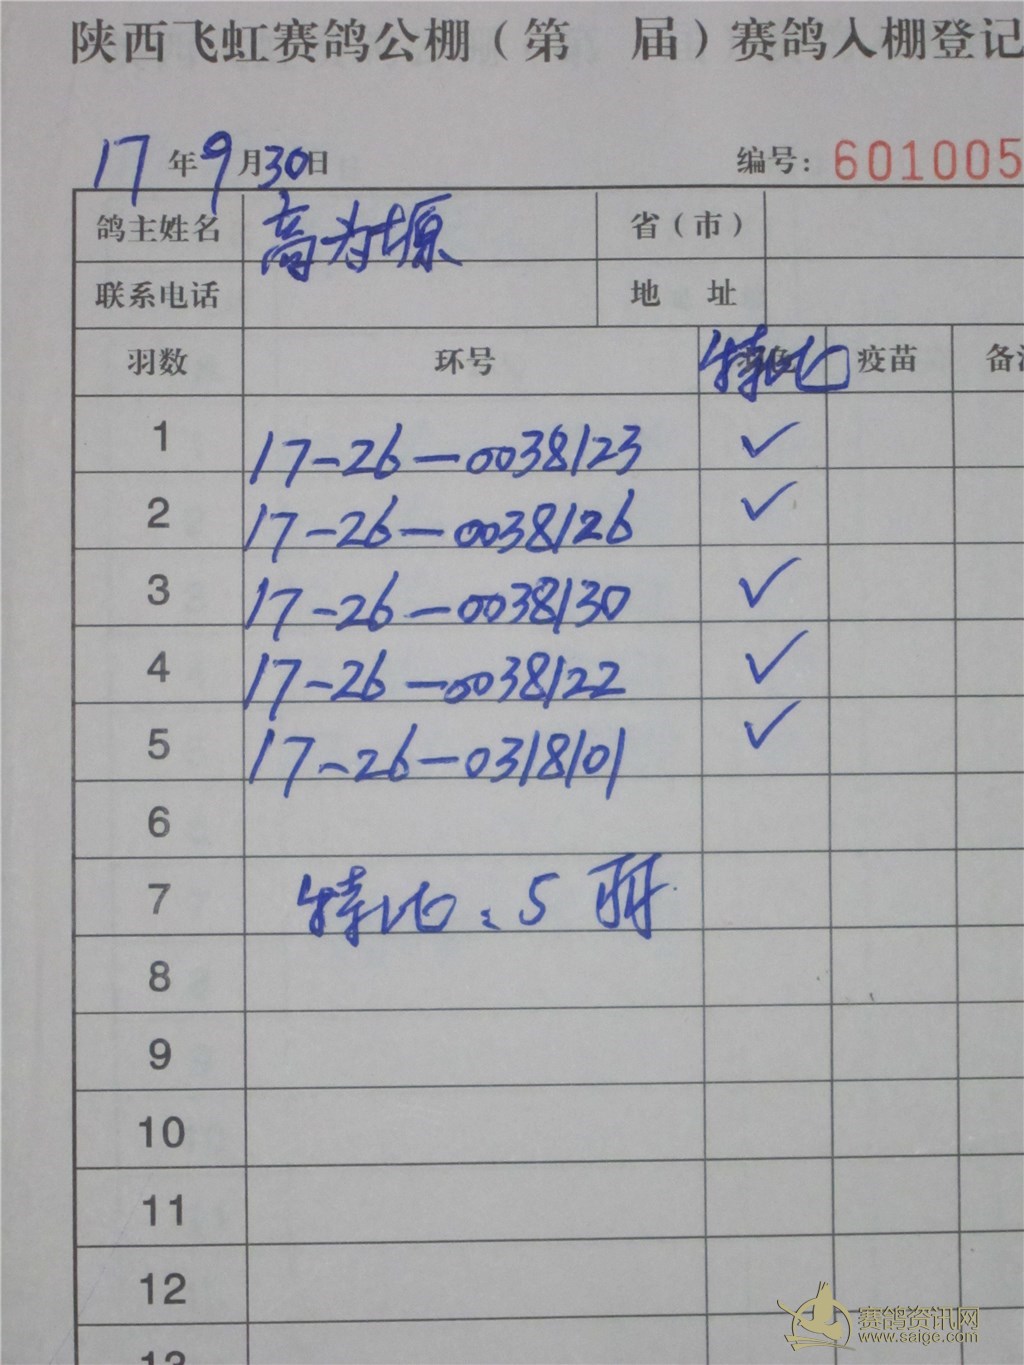 陕西飞虹赛鸽公棚（第 届）赛鸽入棚登记
17年9月30日 编号：601005
鸽主姓名 高为塬 省（市）
联系电话 地 址
羽数 环号 特比 疫苗 备注
1 17-26-0038123 ✓
2 17-26-0038126 ✓
3 17-26-0038130 ✓
4 17-26-0038122 ✓
5 17-26-0318101 ✓
6
7 特比：5羽
8
9
10
11
12
13
赛鸽资讯网
www.saige.com